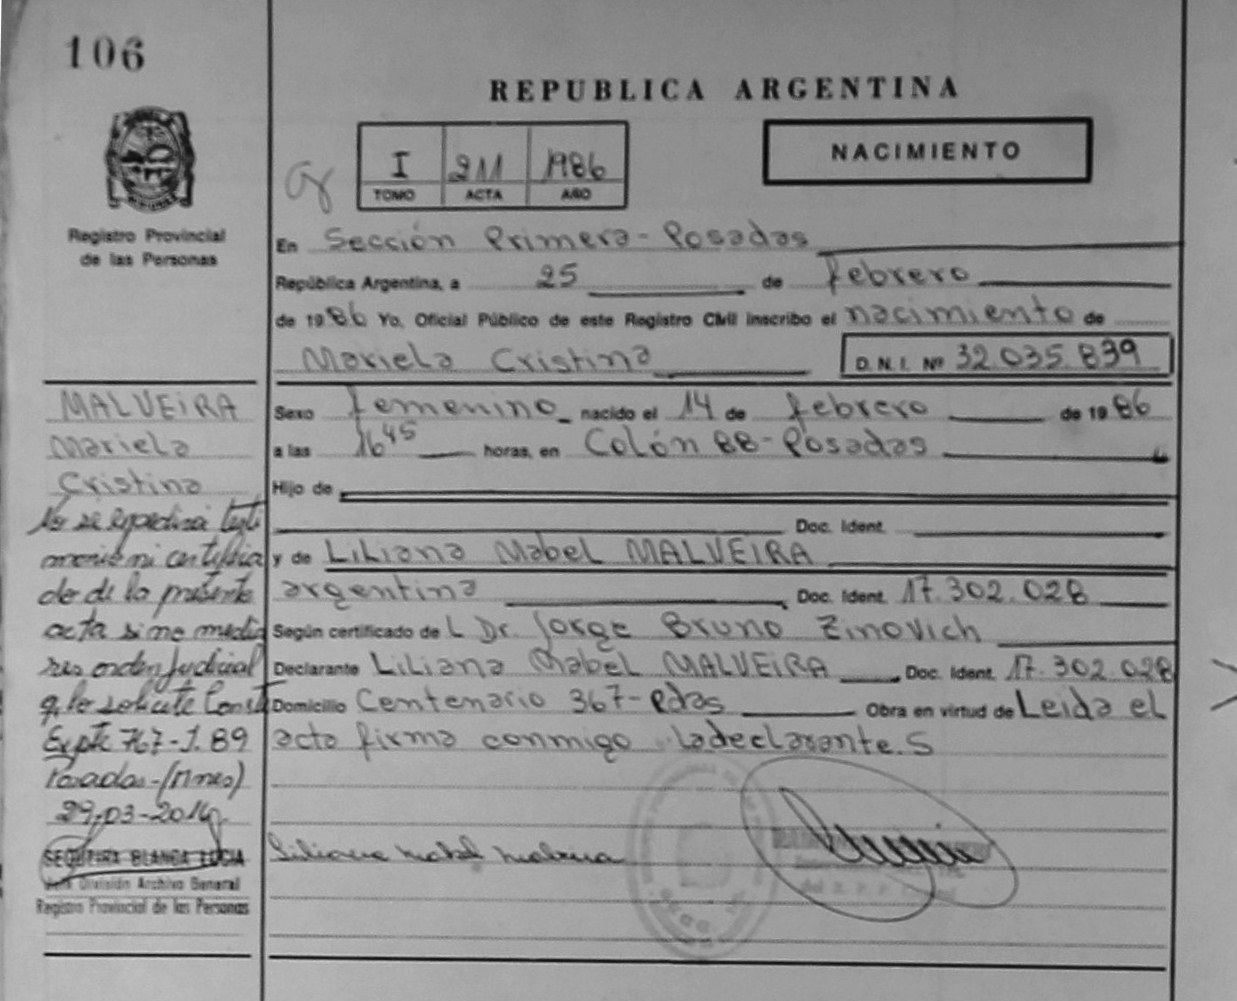 106
REPUBLICA ARGENTINA
I 211 1986
TOMO ACTA AÑO
NACIMIENTO
Registro Provincial
de las Personas
En Sección Primera-Posadas
República Argentina, a 25 de febrero
de 1986 Yo, Oficial Público de este Registro Civil inscribo el nacimiento de
Mariela Cristina D.N.I. Nº 32.035.839
Sexo femenino nacido el 14 de febrero de 1986
a las 16 45 horas, en Colón 88-Posadas
Hijo de
Doc. Ident.
y de Liliana Mabel MALVEIRA
argentina Doc. Ident. 17.302.028
Según certificado de L Dr. Jorge Bruno Zinovich
Declarante Liliana Mabel MALVEIRA Doc. Ident. 17.302.028
Domicilio Centenario 367-Pdas Obra en virtud de Leida el
acta firma conmigo la declarante.S
Liliana Mabel Malveira
MALVEIRA
Mariela
Cristina
No se expedirá testi
monio ni certifica
do de la presente
acta si no media
res orden judicial
q. lo solicite Const
Expte 767-J.89
Posadas-(Mnes)
29-03-2014
SEQUEIRA BLANCA LUCIA
Jefa División Archivo General
Registro Provincial de las Personas